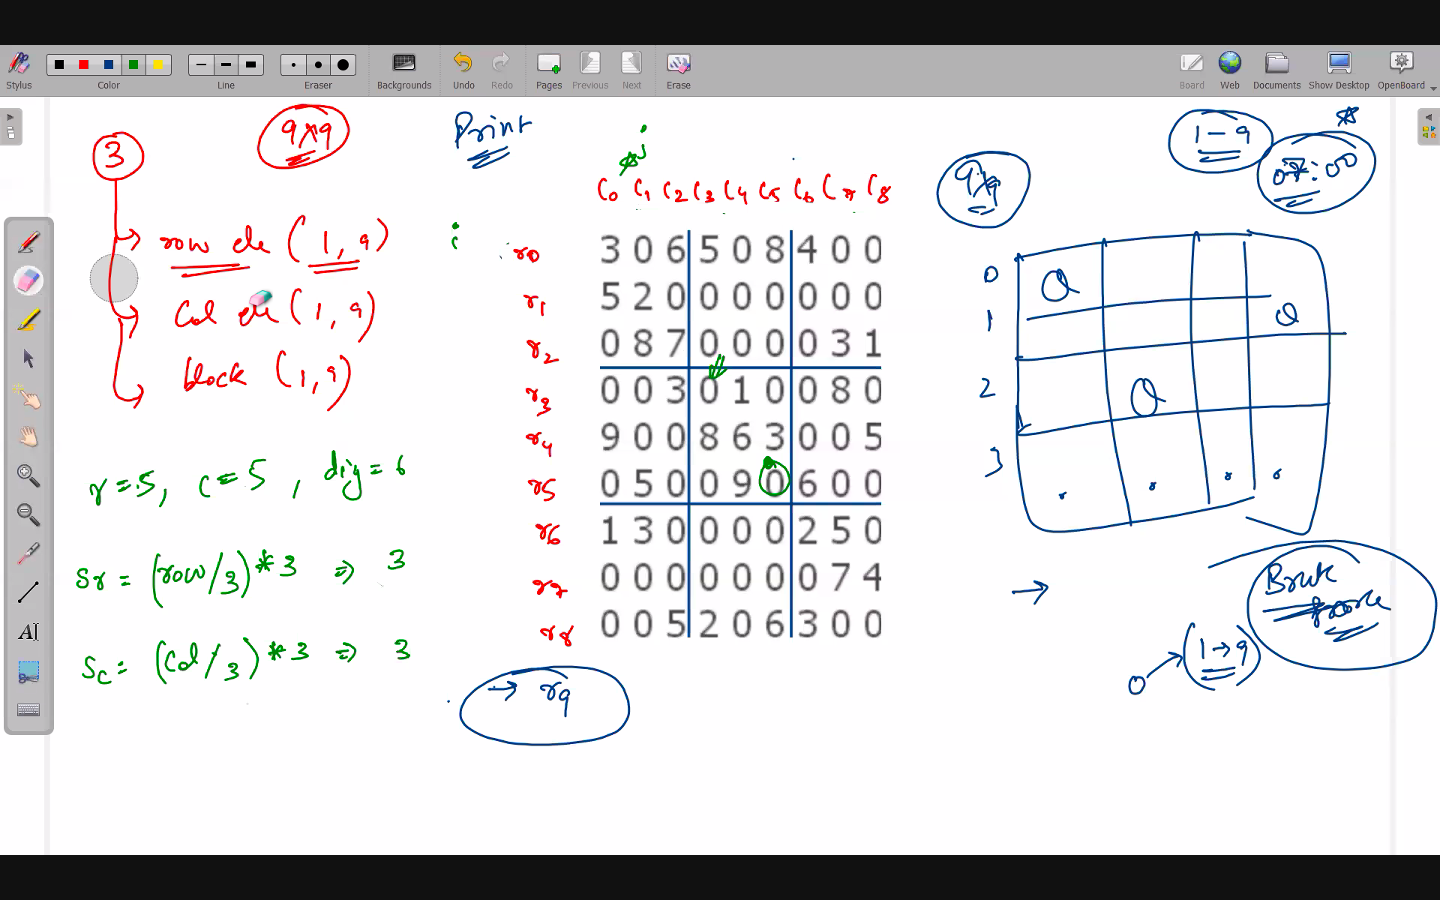 Stylus
Color
Line
Eraser
Backgrounds
Undo
Redo
Pages
Previous
Next
Erase
Board
Web
Documents
Show Desktop
OpenBoard
3
9x9
Print
j
i
row ele (1, 9)
Col ele (1, 9)
block (1, 9)
r = 5, c = 5, dig = 6
Sr = (row/3) * 3 => 3
Sc = (Col/3) * 3 => 3
C0 C1 C2 C3 C4 C5 C6 C7 C8
r0 3 0 6 5 0 8 4 0 0
r1 5 2 0 0 0 0 0 0 0
r2 0 8 7 0 0 0 0 3 1
r3 0 0 3 0 1 0 0 8 0
r4 9 0 0 8 6 3 0 0 5
r5 0 5 0 0 9 0 6 0 0
r6 1 3 0 0 0 0 2 5 0
r7 0 0 0 0 0 0 0 7 4
r8 0 0 5 2 0 6 3 0 0
→ r9
9x9
1 - 9
0 Q
1 Q
2 Q
3
→
Brute
force
0 → (1 → 9)
AI